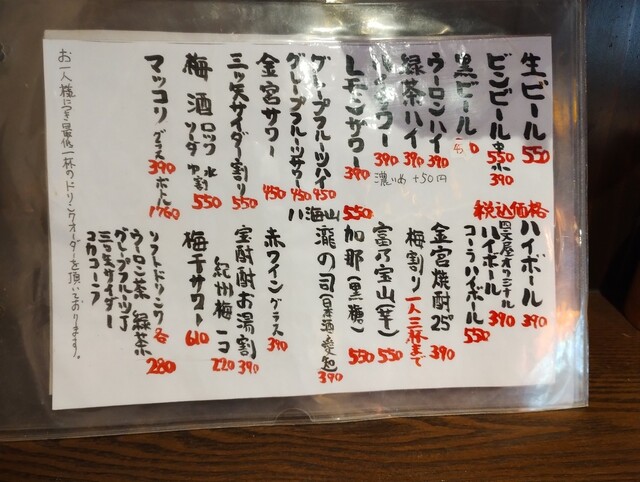 生ビール 550
ビンビール 中 550 小 390
黒ビール
ウーロンハイ 390
緑茶ハイ 390
サワー 390
濃いめ +50円
レモンサワー 390
グレープフルーツハイ 450
グレープフルーツサワー 450
金宮サワー 450
三ッ矢サイダー割り 550
梅酒 ロック 水 ソーダ 割 550
マッコリ グラス 390 ボトル 1760
お一人様につき最低一杯のドリンクオーダーを頂いております。
税込価格
ハイボール 390
ハイボール 390
コーラハイボール 550
金宮焼酎25° 390
梅割り 一人三杯まで
富乃宝山(芋) 550
加那(黒糖) 550
八海山 550
瀧の司(日本酒・愛知) 390
赤ワイン グラス 390
宝酎酎お湯割 390
紀州梅 一コ 220
梅干サワー 610
ソフトドリンク各 280
ウーロン茶 緑茶
グレープフルーツJ
三ッ矢サイダー
コカコーラ